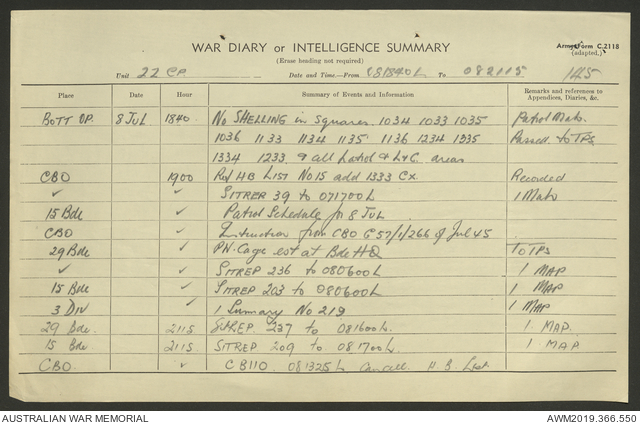 WAR DIARY or INTELLIGENCE SUMMARY
Army Form C.2118
(adapted.)
(Erase heading not required)
Unit 22 CP. Date and Time.—From 081840L To 082115 145
Place Date Hour Summary of Events and Information Remarks and references to Appendices, Diaries, &c.
BOTT OP. 8 JUL 1840 No SHELLING in Squares 1034 1033 1035 Patrol Mats.
1036 1133 1134 1135 1136 1234 1335 Passed to TPS
1334 1233 & all Patrol & L&C areas
CBO 1900 Ref HB LIST No 15 add 1333 Cx. Recorded
✓ ✓ SITREP 39 to 071700L 1 Map
15 Bde ✓ Patrol Schedule for 8 JUL
CBO ✓ Instruction from CBO G57/1/266 of Jul 45
29 Bde ✓ PW. Cage est at Bde HQ To TPS
✓ ✓ SITREP 236 to 080600L 1 MAP
15 Bde ✓ SITREP 203 to 080600L 1 MAP
3 DIV ✓ 1 Summary No 219 1 MAP
29 Bde. 2115 SITREP 237 to 081600L. 1 MAP.
15 Bde 2115 SITREP 209 to 081700L 1 MAP.
CBO. ✓ CB110 081325L Cancel. H.B. List
AUSTRALIAN WAR MEMORIAL AWM2019.366.550